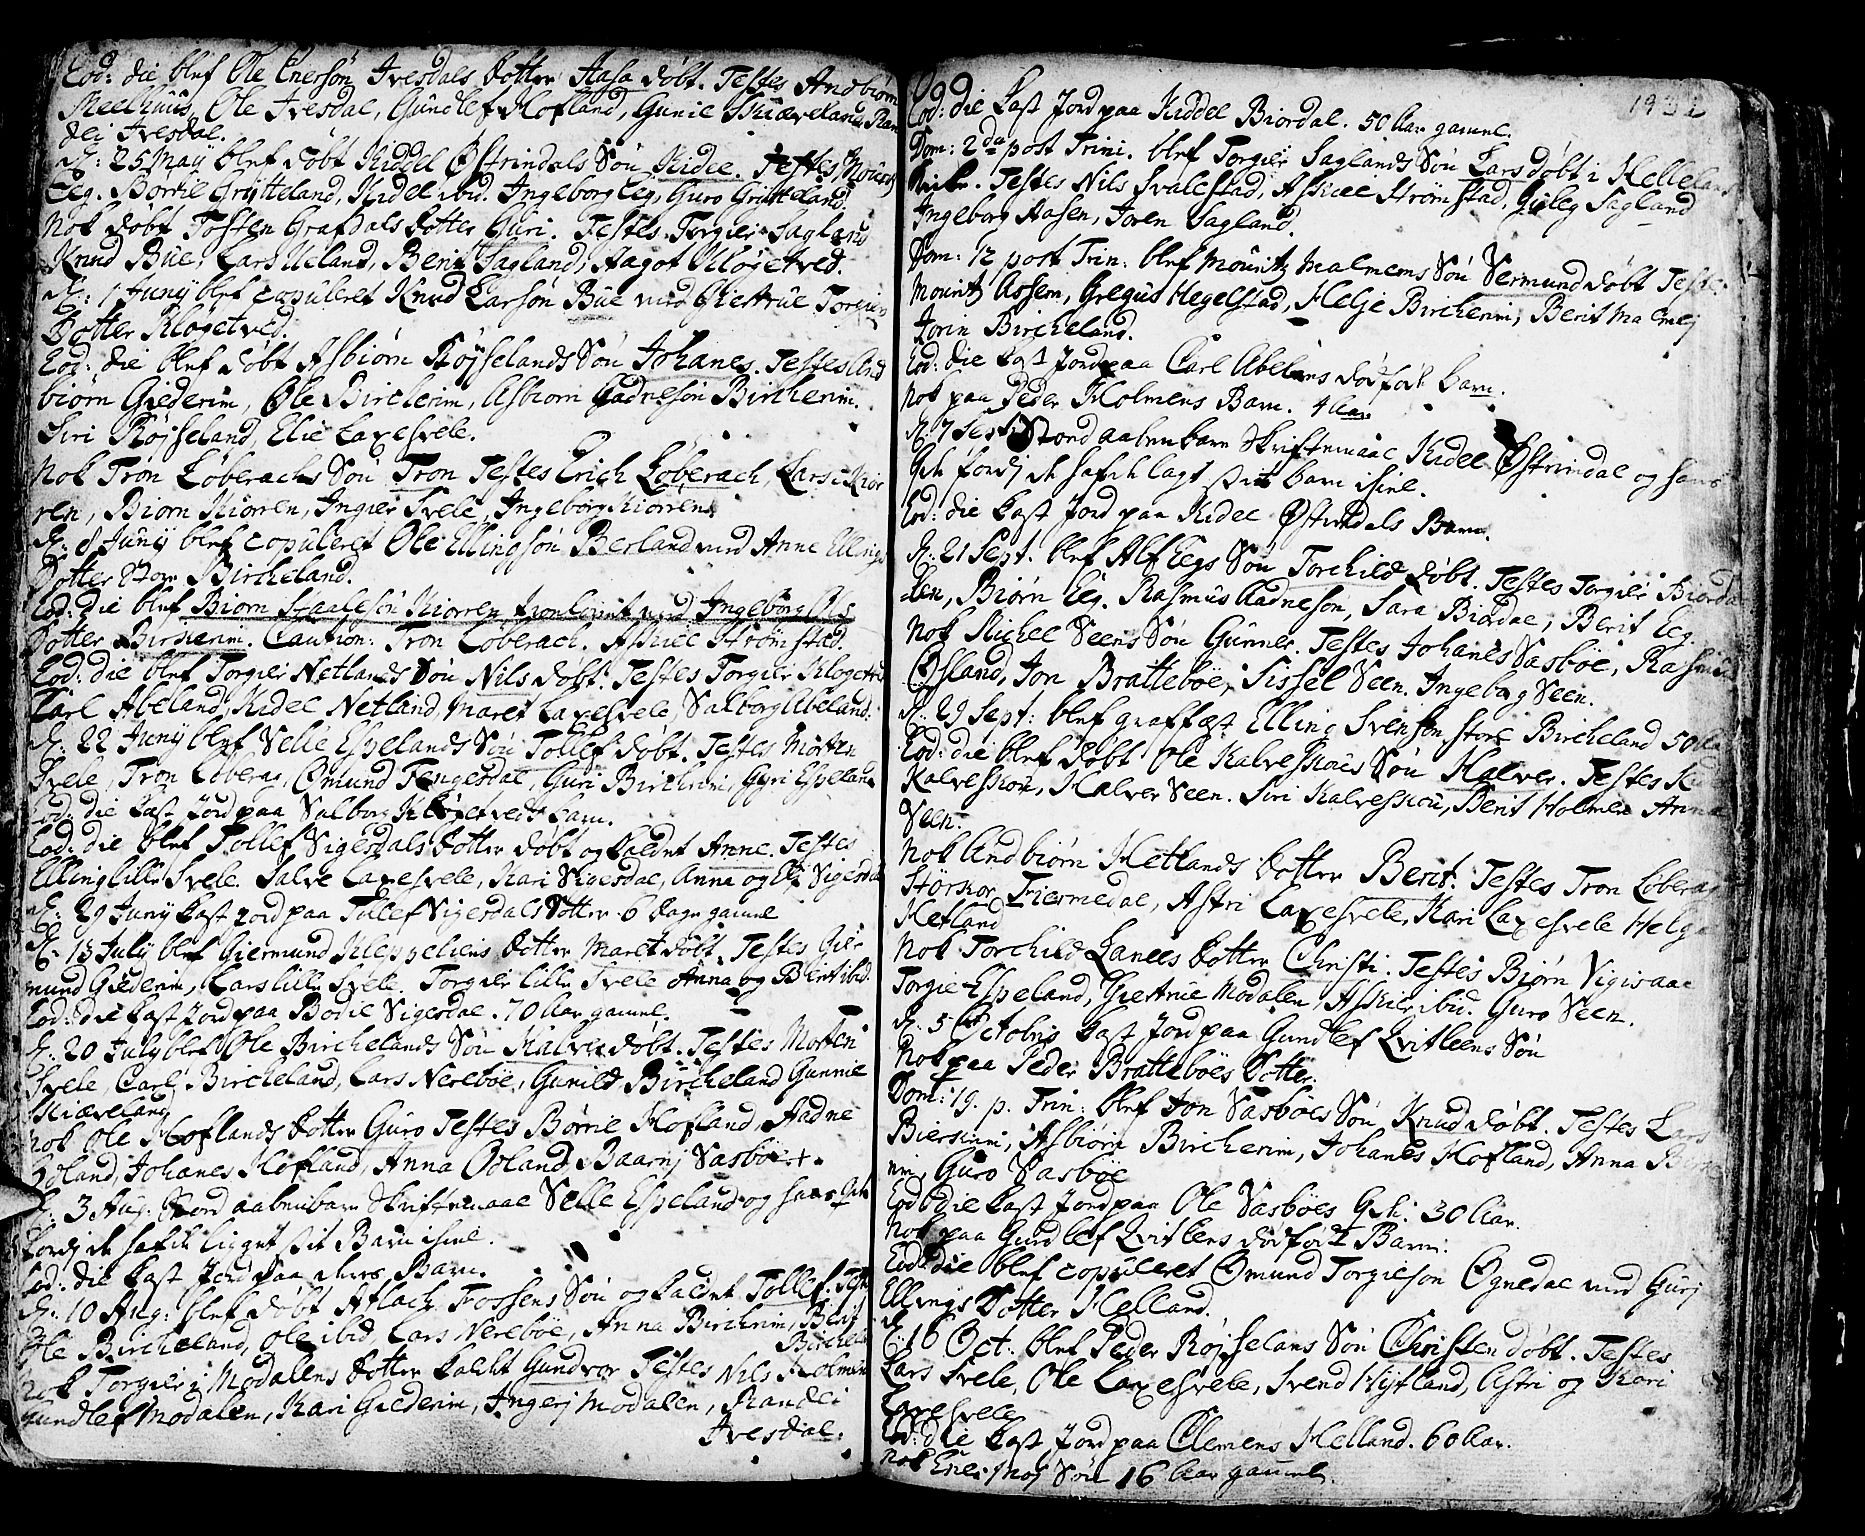 Eod: die blef Ole Enersøn Ivesdals Dotter Aasa døbt. Testes Andbiørn
Meelhuus, Ole Ivesdal, Gundlef Hofland, Gunil Skiæveland Ran
dei Ivesdal.
D: 25 May blef døbt Kiddel Østrindals Søn Kidel. Testes Mouritz
Eeg. Bertil Grytteland, Kidel ibid. Ingeborg Eeg, Guro Grytteland.
Nok døbt Tosten Grafdals Dotter Guri. Testes Torgier Sagland
Knud Bue, Lars Ueland, Berit Sagland, Aagot Kløgetved.
D: 1 Juny blef copuleret Knud Larsøn Bue med Giertrue Torgiers
Dotter Kløgetved.
Eod: die blef døbt Asbiørn Røjselands Søn Johanes. Testes And
biørn Giederim, Ole Bircherim, Asbiørn Gadnesøn Bircherim.
Siri Røjseland, Elie Laxesvele.
Nok Tron Løberachs Søn Tron Testes Erich Løberach, Lars Kiør
ren, Biørn Kiørren, Ingier Svele, Ingeborg Kiørren.
D: 8 Juny blef copuleret Ole Ellingsøn Berland med Anne Ellings
Dotter Store Bircheland.
Eod: die blef Biørn Staalesøn Kiørren trolovet med Ingeborg Ols
Dotter Birkerim. Caution: Tron Løberach. Askiel Strømstad.
Eod: die blef Torgier Netlands Søn Nils døbt. Testes Torgier Kløgetved
Carl Abeland, Kidel Netland, Maret Laxesvele, Salborg Abeland.
D: 22 Juny blef Velle Espelands Søn Tollef døbt. Testes Morten
Svele, Tron Løberag, Omund Tengesdal, Guri Bircherim, Gyri Espeland
Eod: die Kast Jord paa Salborg Kløgetvedt Barn.
Eod: die blef Tollef Vigesdals Dotter døbt og kaldet Anne. Testes
Elling lille Svele. Salve Laxesvele, Kari Vigesdal, Anna og Eli Vigesdal
D: 29 Juny Kast Jord paa Tollef Vigesdals Dotter 6 Dage gammel
D: 13 July blef Giermund Kleppeliens Dotter Maret døbt. Testes Gier
mund Giederim, Lars lille Svele. Torgier lille Svele Anna og Berit ibid.
Eod: die Kast Jord paa Bodil Vigesdal. 70 Aar gammel.
D: 20 July blef Ole Birchelands Søn Halvor døbt. Testes Morten
Svele, Carl Bircheland, Lars Nerebøe, Gunild Bircheland Gunnil
Skiæveland
Nok Ole Hoflands Dotter Guro Testes Børrie Hofland, Aadne
Odland, Johanes Hofland, Anna Odland, Baarni Sasbøe.
D: 3 Aug: stod aabenbare Skriftemaal Velle Espeland og hans Qvi
fordj de hafde ligget sit Barn ihiel.
Eod: die Kast Jord paa deres Barn.
D: 10 Aug: blef døbt Aslach Fossens Søn og kaldet Tollef. Test
Ole Bircheland, Ole ibid, Lars Nerebøe, Anna Bircherim, Berit
Birchela
Nok Torgier Modalens Dotter kaldt Gundvor Testes Nils Holmen
Gundlef Modalen, Kari Giederim, Ingerj Modalen, Randei
Ivesdal.
Eod: die Kast Jord paa Kiddel Biordal. 50 Aar gammel.
Dom: 2da post Trini. blef Torgier Saglands Søn Lars døbt i Hellelands
Kirke. Testes Nils Svalestad, Askiel Strømstad, Sagland
Ingeborg Aasen, Joren Sagland.
Dom: 12 post Trin: blef Mouritz Malmems Søn Vermund døbt Testes
Mouritz Assem, Gregus Hegelstad, Helje Bircherim, Berit Malmej
Jorin Bircheland.
Eod: die Kast Jord paa Carl Abelands dødfødt Barn.
Nok paa Peder Holmens Barn. 4 Aar
D: 7 Sept: stod aabenbare Skriftemaal Kidel Østrindal og hans
Qvi fordj de hafde lagt sit Barn ihiel.
Eod: die Kast Jord paa Kidel Østrindals Barn.
D: 21 Sept: blef Alf Eegs Søn Torchild døbt. Testes Torgier Biorda
len, Biørn Eeg. Rasmus Aadnesøn, Sara Biordal, Berit Eeg.
Nok Michel Veens Søn Gunner. Testes Johanes Sasbøe, Rasmus
Øsland, Jon Brattebøe, Sissel Veen. Ingeborg Veen.
D: 29 Sept: blef graffæst Elling Svensøn store Bircheland 50 Aar
Eod: die blef døbt Ole Kalveskoues Søn Halver. Testes
Kalveskou, Halver Veen. Siri Kalveskou, Berit Holmen Anna
Veen.
Nok Andbiørn Hetlands Dotter Berit. Testes Tron Løberag
Størkor Tiermedal, Astri Laxesvele, Kari Laxesvele Helge
Hetland
Nok Torchild Lanees Dotter Christi. Testes Biørn Vigisaae
Torgie Espeland, Giertrue Modalen, Askier ibid. Guro Veen.
D: 5 Octobris Kast Jord paa Gundlef Qvitleens Søn
Nok paa Peder Brattebøes Dotter.
Dom: 19. p. Trin: blef Jon Sasbøes Søn Knud døbt. Testes Lars
Bierkrim, Asbiørn Bircherim, Johanes Hofland, Anna Birke
rim, Guro Sasbøe
Eod: die Kast Jord paa Ole Sasbøes Qvi: 30 Aar.
Nok paa Gundlef Qvitleens dødfødt Barn.
Eod: die blef copuleret Omund Torgiersøn Ognedal med Gurj
Ellings Dotter Helland.
D: 16 Oct: blef Peder Røjselans Søn Christen døbt. Testes
Lars Svele, Ole Laxesvele, Svend Hytland, Astri og Kari
Laxesvele
Eod: die Kast Jord paa Clemens Helland. 60 Aar.
Nok Søn 16 Aar gammel.